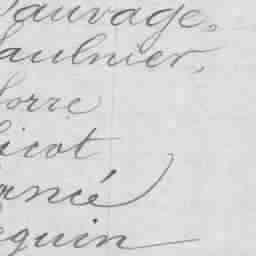 Sauvage,
aulnier,
lorre
icot
ancé
equin